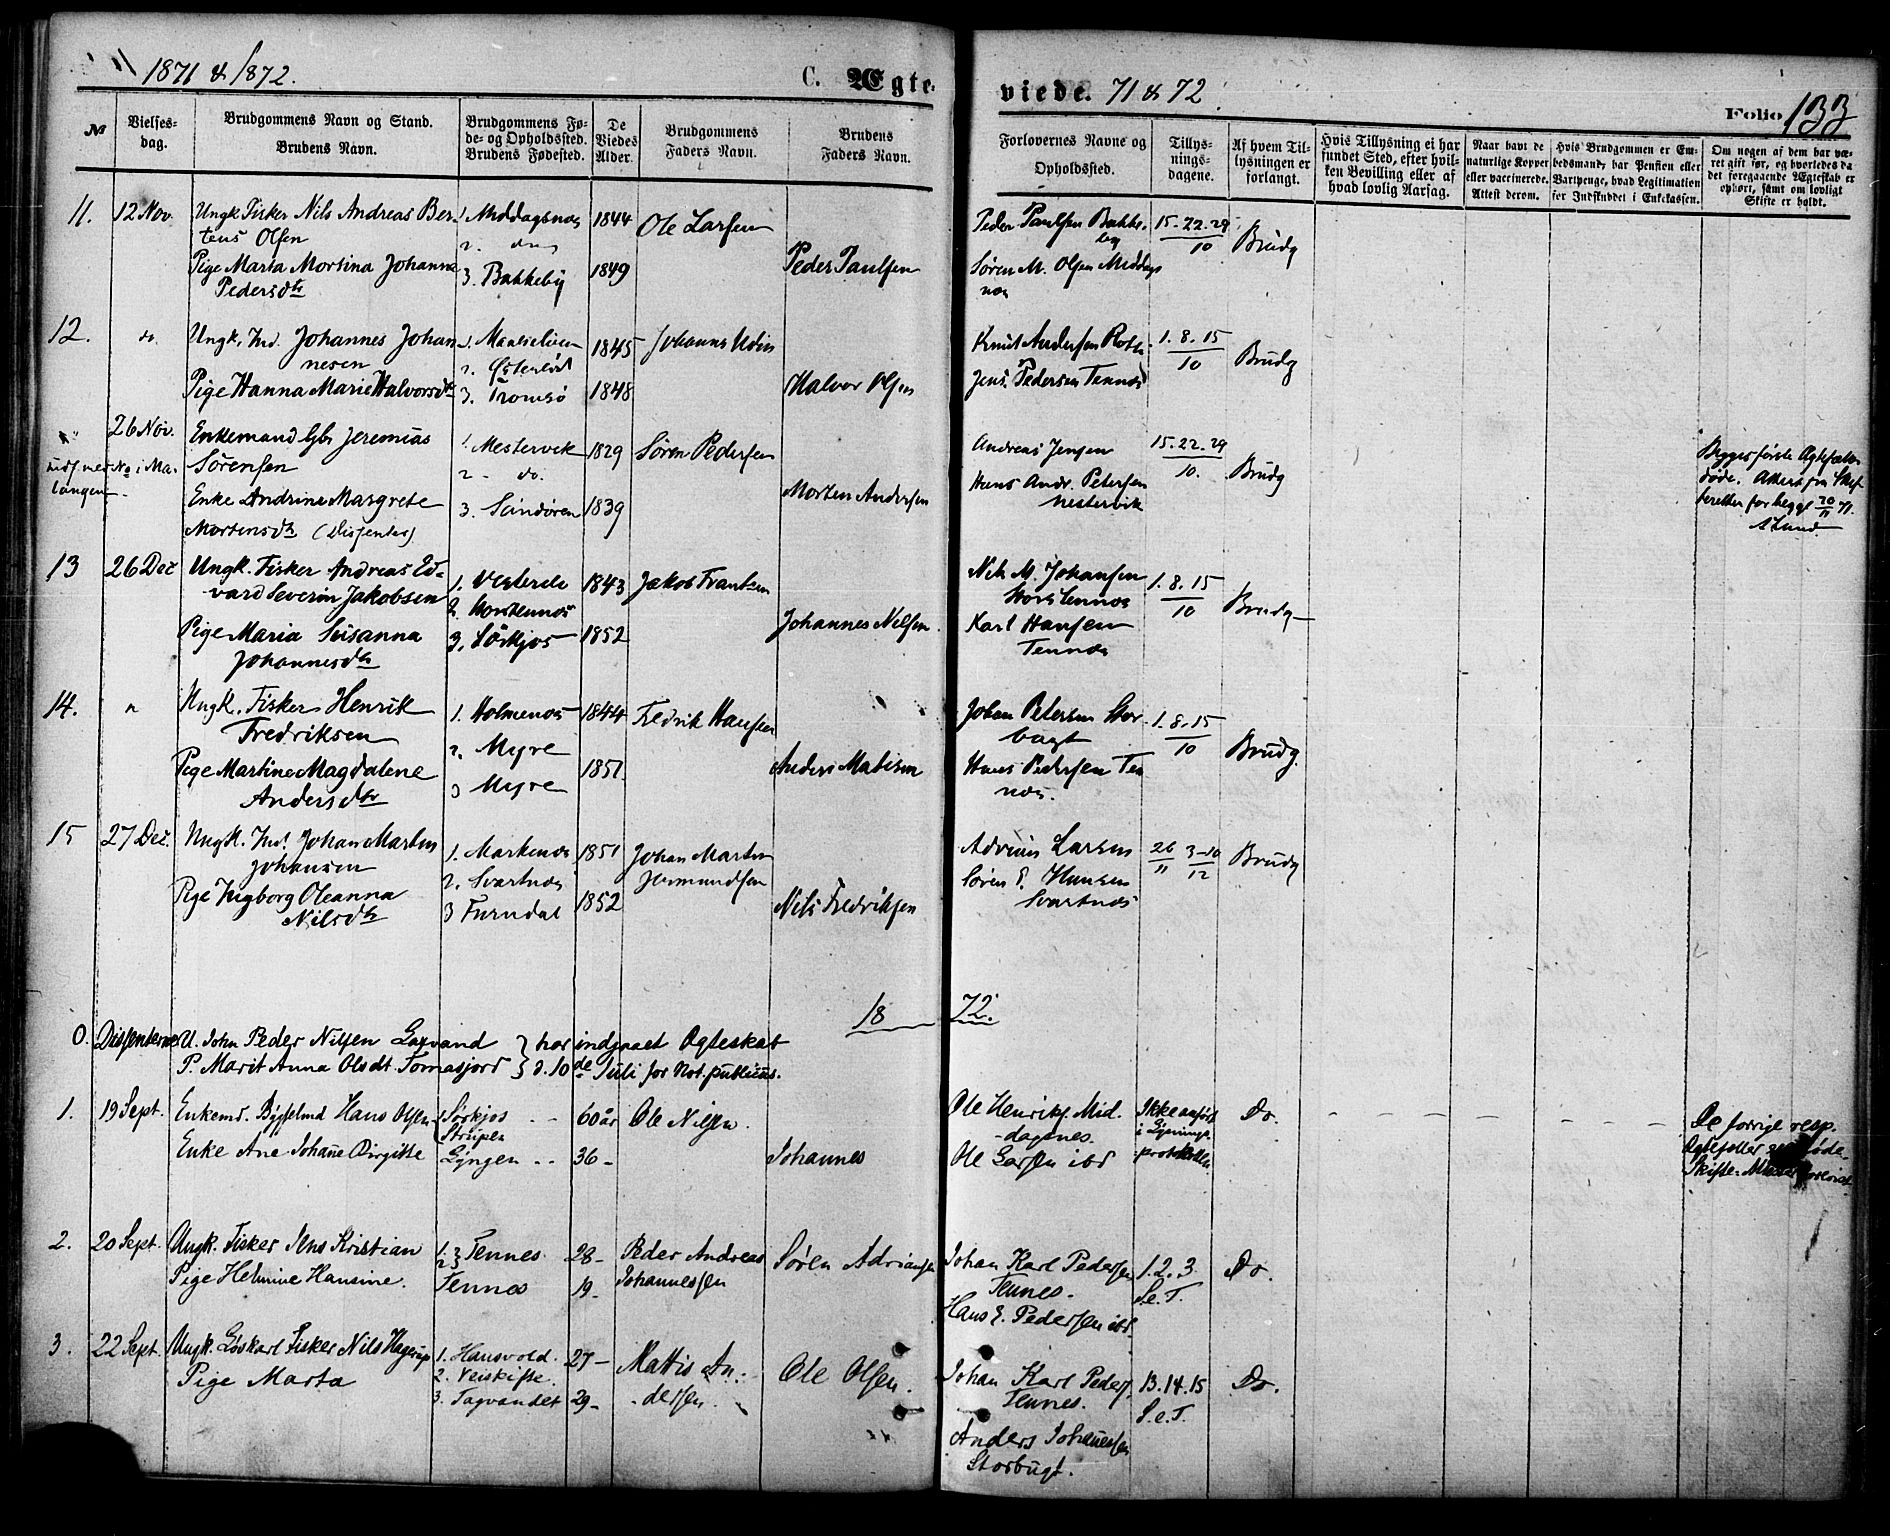 1871 & 1872.
C. Ægte-
viede. 71 & 72.
Folio 133
No
Vielses-
dag.
Brudgommens Navn og Stand.
Brudens Navn.
Brudgommens Fø-
de- og Opholdssted.
Brudens Fødested.
De
Viedes
Alder.
Brudgommens
Faders Navn.
Brudens
Faders Navn.
Forlovernes Navne og
Opholdssted.
Tillys-
nings-
dagene.
Af hvem Til-
lysningen er
forlangt.
Hvis Tillysning ei har
fundet Sted, efter hvil-
ken Bevilling eller af
hvad lovlig Aarsag.
Naar havt de
naturlige Kopper
eller vaccinerede.
Attest derom.
Hvis Brudgommen er Em-
bedsmand, har Pension eller
Vartpenge, hvad Legitimation
for Indskuddet i Enkekassen.
Om nogen af dem har væ-
ret gift før, og hvorledes da
det foregaaende Ægteskab er
ophørt, samt om lovligt
Skifte er holdt.
11. 12 Nov. Ungk Fisker Nils Andreas Ber-
tens Olsen
Pige Maria Mortina Johanna
Pedersdtr
1. Middagsnes
2. do
3. Bakkeby
1844
1849
Ole Larsen
Peder Paulsen
Peder Paulsen Bakke-
by
Søren M. Olsen Middags
nes
15. 22. 29
10
Brudg
12. do. Ungk. Ind. Johannes Johan
nesen
Pige Hanna Marie Halvorsdtr
1. Maalselven
2.
3. Tromsø
1845
1848
Johannes
Halvor Olsen
Knut Andersen
Jens Pedersen Tennes
1. 8. 15
10
Brudg
26 Nov.
Indf. med No i Ma-
langen
Enkemand Gbr Jeremias
Sørensen
Enke Andrine Margrete
Mortensdtr (Dissenter)
1. Mestervik
2. do.
3. Sandøren
1829
1839
Søren Pedersen
Morten Andersen
Andreas Jensen
Hans Andr. Petersen
Mestervik
15. 22. 29
10.
Brudg
Begges første Ægtefæller
døde. Attest fra Skif
teretten for begge 20/11 71.
13 26 Dec Ungk. Fisker Andreas Ed-
vard Severin Jakobsen
Pige Maria Susanna
Johannesdtr
1.
2. Storstennes
3. Sørkjos
1843
1852
Jakob Frantsen
Johannes Nilsen
Nils M. Johansen
Storstennes
Karl Hansen
Tennes
1. 8. 15
10
Brudg
14. " Ungk. Fisker Henrik
Fredriksen
Pige Martine Magdalene
Andersdtr
1. Holmenes
2. Myre
3 Myre
1844
1851
Fredrik Hansen
Anders Matisen
Johan Petersen Stor
bugt
Hans Pedersen Ten
nes.
1. 8. 15
10
Brudg.
15 27 Dec. Ungk. Ind. Johan Martin
Johansen
Pige Ingborg Oleanna
Nilsdtr
1. Markenes
2. Svartnes
3 Furudal
1851
1852
Johan Martin
Jermundsen
Nils Fredriksen
Larsen
Søren P. Hansen
Svartnes
26 3-10
11 12
Brudg
1872.
0. Dissenterne U. John Peder Nilsen Laxvand } har indgaaet Ægteskab
P. Marit Anna Olsdt. Tomasjord } d. 10de Juli for Not. publicus.
1. 19 Sept. Enkemd. Bygselmd Hans Olsen
Enke Ane Johane Birgitte
Sørkjos
Strupen
Lyngen
60 år
36 -
Ole Nilsen.
Johannes
Ole Henriks. Mid.
- dagsnes.
Ole Larsen ibd
Ikke anført
i Lysnings-
protokollen
Do.
De forrige resp.
Ægtefeller ere døde.
2. 20 Sept. Ungk. Fisker Jens Kristian
Pige Helmine Hansine.
1. 2. } Tennes
Tennes
28 -
19 -
Peder Andreas
Johannessen
Søren Adriansen
Johan Karl Pedersen
Tennes.
Hans E. Pedersen ibd.
1. 2. 3.
S. e. T.
Do.
3. 22 Sept. Ungk. Løskarl Fisker Nils Hagerup
Pige Marta
1. Hansvold.
2. Veiskifte.
3. Tagvandet
27 -
29 -
Mattis An-
dersen.
Ole Olsen.
Johan Karl Peders.
Tennes.
Anders Johannessen
Storbugt.
13. 14. 15
S. e. T.
Do.